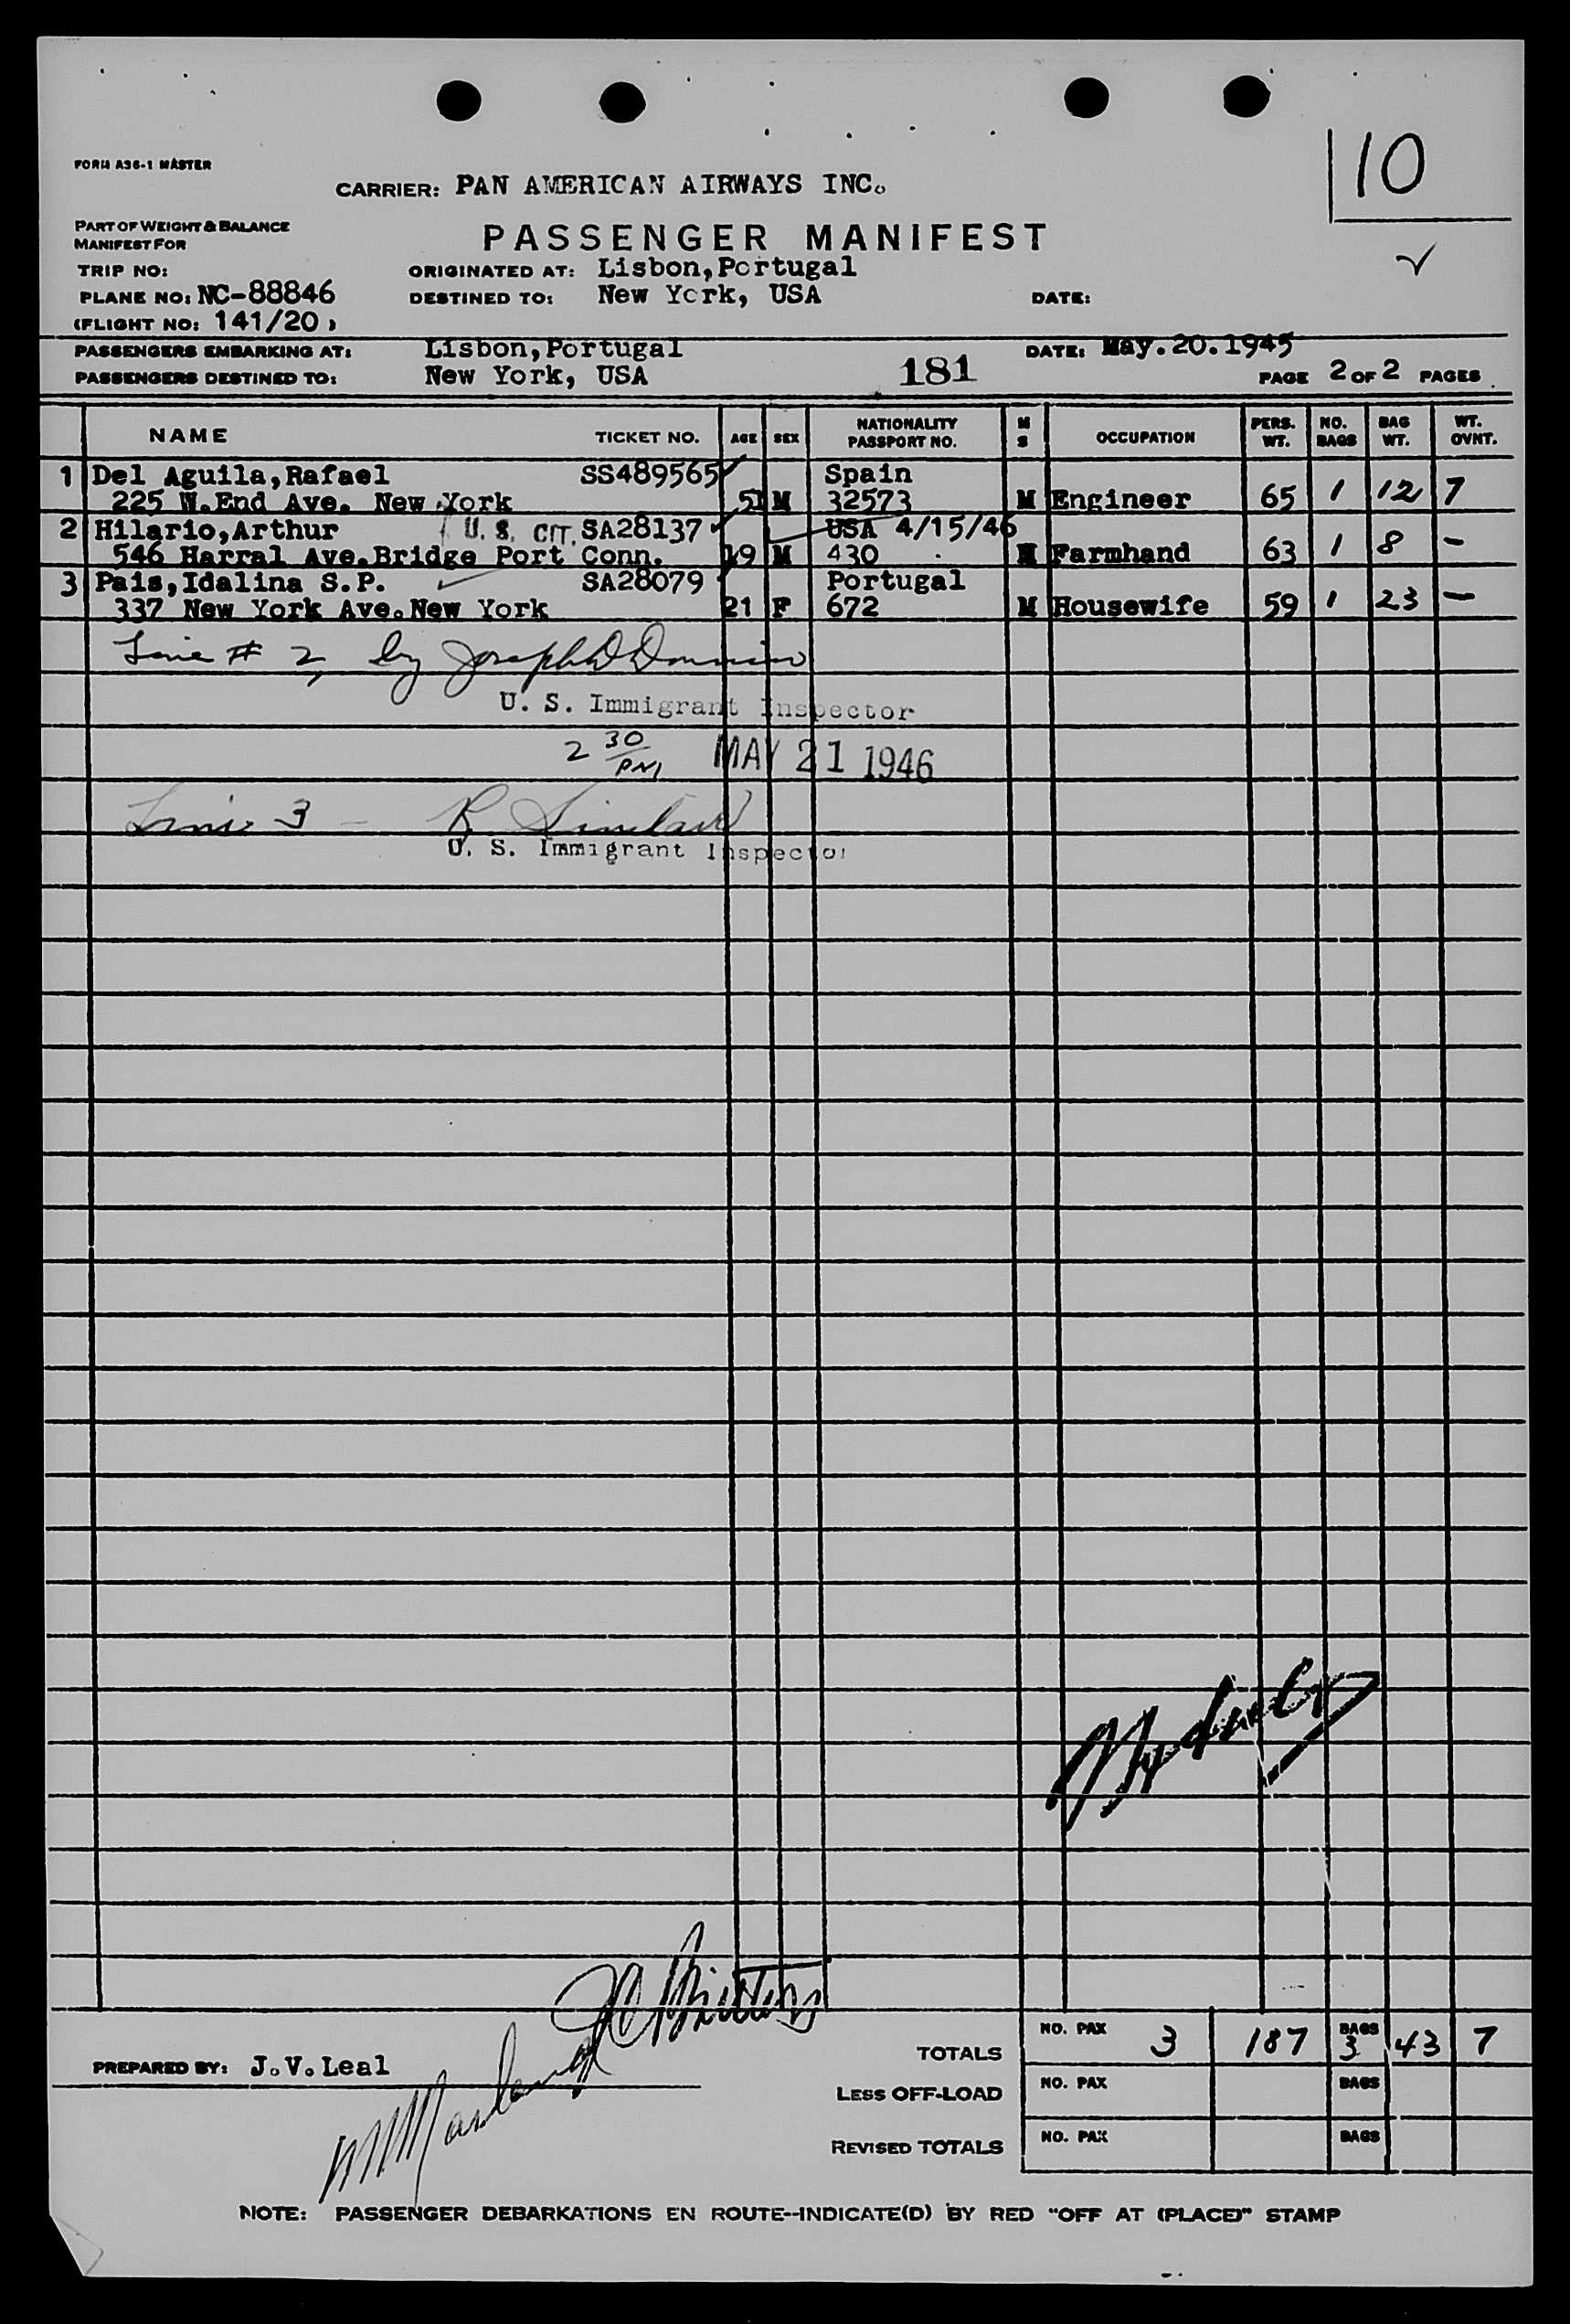 FORM A36-1 MASTER
10
CARRIER: PAN AMERICAN AIRWAYS INC.
PART OF WEIGHT & BALANCE
MANIFEST FOR
PASSENGER MANIFEST
TRIP NO:
ORIGINATED AT: Lisbon,Portugal
PLANE NO: NC-88846
DESTINED TO: New York, USA
DATE:
(FLIGHT NO: 141/20)
PASSENGERS EMBARKING AT: Lisbon,Portugal
DATE: May.20.1945
PASSENGERS DESTINED TO: New York, USA
181
PAGE 2 OF 2 PAGES
NAME TICKET NO. AGE SEX NATIONALITY PASSPORT NO. M S OCCUPATION PERS. WT. NO. BAGS BAG WT. WT. OVNT.
1 Del Aguila,Rafael SS489565 Spain
225 W.End Ave. New York 51 M 32573 M Engineer 65 1 12 7
2 Hilario,Arthur U.S. CIT. SA28137 USA 4/15/46
546 Harral Ave.Bridge Port Conn. 19 M 430 M Farmhand 63 1 8 -
3 Pais,Idalina S.P. SA28079 Portugal
337 New York Ave.New York 21 F 672 M Housewife 59 1 23 -
Line # 2, by Joseph D
U. S. Immigrant Inspector
2 30 PM MAY 21 1946
Line 3 - R Sinclair
U. S. Immigrant Inspector
TOTALS NO. PAX 3 187 BAGS 3 43 7
PREPARED BY: J.V.Leal
LESS OFF-LOAD NO. PAX BAGS
REVISED TOTALS NO. PAX BAGS
NOTE: PASSENGER DEBARKATIONS EN ROUTE--INDICATE(D) BY RED "OFF AT (PLACE)" STAMP